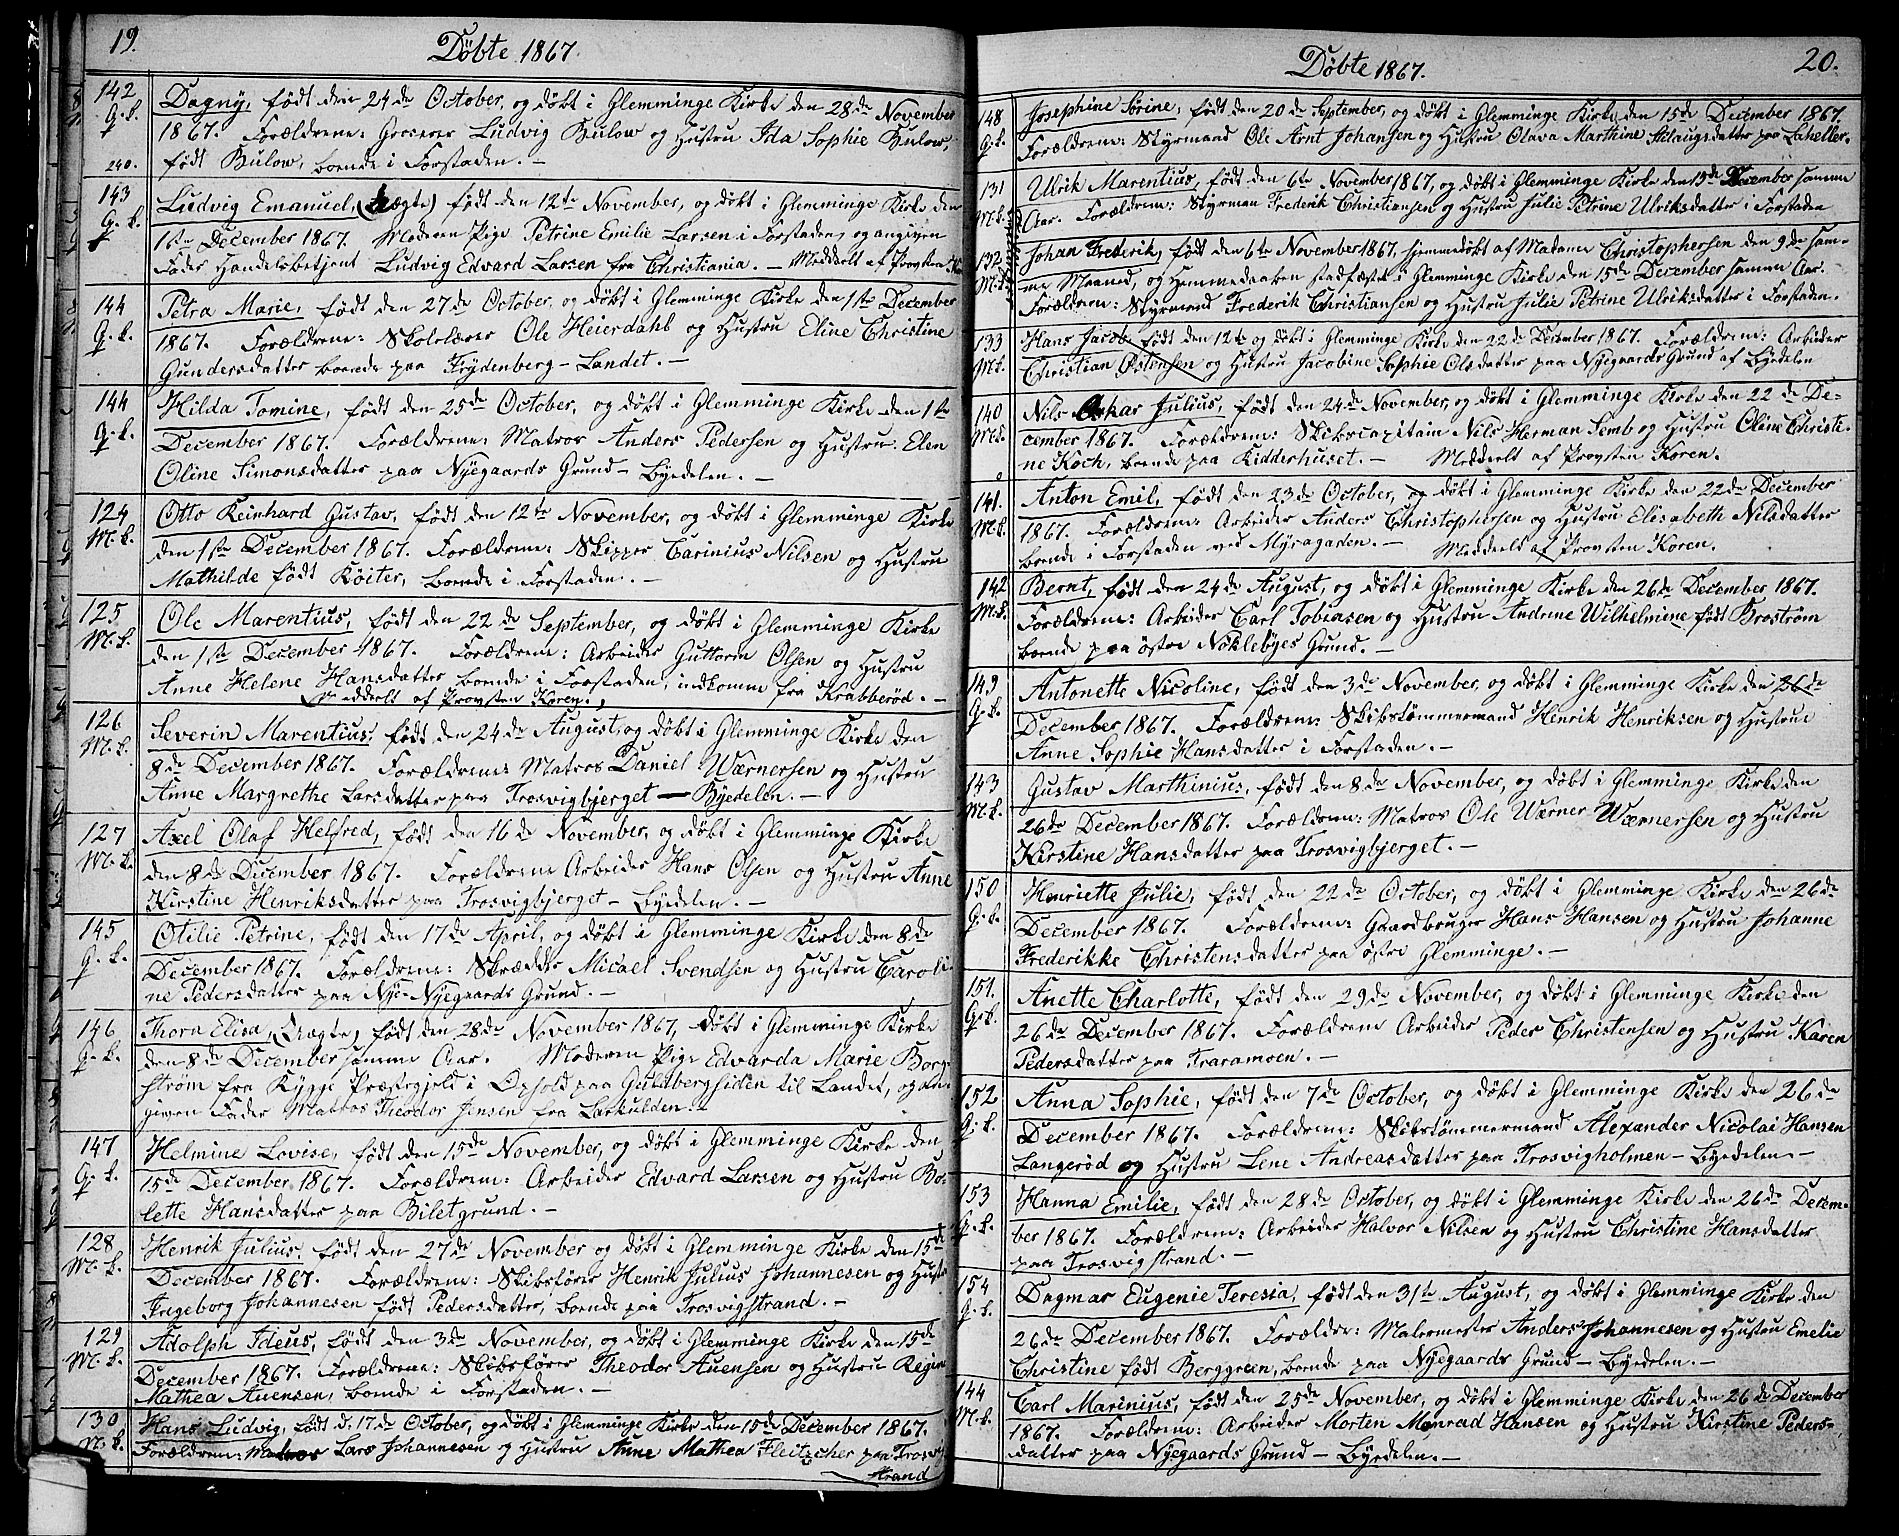 19.
Døbte 1867.
142 Dagny, født den 24de October, og døbt i Glemminge Kirke den 28de November
G. k. 1867. Forældrene: Groserer Ludvig Bülow og Hustru Ida Sophie Bülow,
240. født Bülow, boende i Forstaden. —
143 Ludvig Emanuel, (uægte) født den 12te November, og døbt i Glemminge Kirke den
G. k. 1ste December 1867. Moderen Pige Petrine Emilie Larsen i Forstaden, og angiven
Fader Handelsbetjent Ludvig Edvard Larsen fra Christiania. — Meddelt af Provsten
144 Petra Marie, født den 27de October, og døbt i Glemminge Kirke den 1ste December
G. k. 1867. Forældrene: Skolelærer Ole Heierdahl og Hustru Eline Christine
Gundersdatter boende paa Frydenberg — Landet. —
144 Hilda Tomine, født den 25de October, og døbt i Glemminge Kirke den 1ste
G. k. December 1867. Forældrene: Matros Anders Pedersen og Hustru Elen
Oline Simonsdatter paa Nyegaards Grund — Byedelen. —
124 Otto Reinhard Gustav, født den 12te November, og døbt i Glemminge Kirke
M. k. den 1ste December 1867. Forældrene: Skipper Carinius Nilsen og Hustru
Mathilde født Röiter, boende i Forstaden. —
125 Ole Marentius, født den 22de September, og døbt i Glemminge Kirke
M. k. den 1ste December 1867. Forældrene: Arbeider Guttorm Olsen og Hustru
Anne Helene Hansdatter boende i Forstaden, indkomne fra Krabberød. —
Meddelt af Provsten Koren.
126 Severin Marentius, født den 24de August, og døbt i Glemminge Kirke den
M. k. 8de December 1867. Forældrene: Matros Daniel Wærnersen og Hustru
Anne Margrethe Larsdatter paa Trosvigbjerget — Byedelen. —
127 Axel Olaf Helfred, født den 16de November, og døbt i Glemminge Kirke
M. k. den 8de December 1867. Forældrene Arbeider Hans Olsen og Hustru Anne
Kirstine Henriksdatter paa Trosvigbjerget — Byedelen. —
145 Otilie Petrine, født den 17de April, og døbt i Glemminge Kirke den 8de
G. k. December 1867. Forældrene: Skrædder Micael Svendsen og Hustru Caroli-
ne Pedersdatter paa Nye-Nyegaards Grund. —
146 Thora Elisa, (uægte) født den 28de November 1867, døbt i Glemminge Kirke
G. k. den 8de December samme Aar. Moderen Pige Edvarda Marie Borg-
strøm fra Rygge Præstegjeld i Ophold paa Guldbergsiden til Landet, og an-
given Fader Matros Theodor Jensen fra Larkulden. —
147 Helmine Lovise, født den 15de November, og døbt i Glemminge Kirke den
G. k. 15de December 1867. Forældrene: Arbeider Edvard Larsen og Hustru Bo-
lette Hansdatter paa Biletgrund. —
128 Henrik Julius, født den 27de November og døbt i Glemminge Kirke den 15de
M. k. December 1867. Forældrene: Skibsfører Henrik Julius Johannesen og Hustru
Ingeborg Johannesen født Pedersdatter, boende paa Trosvigstrand. —
129 Adolph Ideus, født den 3de November, og døbt i Glemminge Kirke den 15de
M. k. December 1867. Forældrene: Skibsfører Theodor Auensen og Hustru Regine
Mathea Auensen, boende i Forstaden. —
130 Hans Ludvig, født d. 17de October, og døbt i Glemminge Kirke den 15de December 1867.
M. k. Forældrene: Matros Lars Johannesen og Hustru Anne Mathea Fleitscher paa Trosvig
strand
Døbte 1867.
20.
148 Josephine Sörine, født den 20de September, og døbt i Glemminge Kirke den 15de December 1867.
G. k. Forældrene: Styrmand Ole Arnt Johansen og Hustru Olava Marthine Aslaugsdatter paa Laheller.
131 Ulrik Marentius, født den 6te November 1867, og døbt i Glemminge Kirke den 15de December samme
M. k. Aar. Forældrene: Styrman Frederik Christiansen og Hustru Julie Petrine Ulriksdatter i Forstaden
132 Johan Frederik, født den 6te November 1867, hjemmedøbt af Madame Christophersen den 9de sam-
M. k. me Maaned, og Hjemmedaaben stadfæstet i Glemminge Kirke den 15de December samme Aar.
Forældrene: Styrmand Frederik Christiansen og Hustru Julie Petrine Ulriksdatter i Forstaden.
133 Hans Jacob, født den 12te og døbt i Glemminge Kirke den 22de December 1867. Forældrene: Arbeider
M. k. Christian Østensen og Hustru Jacobine Sophie Olsdatter paa Nyegaards Grund af Byedelen
140 Nils Oskar Julius, født den 24de November, og døbt i Glemminge Kirke den 22de De-
M. k. cember 1867. Forældrene: Skibscapitain Nils Herman Semb og Hustru Oline Christi-
ne Koch, boende paa Ridderhuset. — Meddeelt af Provsten Koren.
141. Anton Emil, født den 23de October, og døbt i Glemminge Kirke den 22de December
M. k. 1867. Forældrene: Arbeider Anders Christophersen og Hustru Elisabeth Nilsdatter
boende i Forstaden ved Myragaden. — Meddeelt af Provsten Koren.
142 Bernt, født den 24de August, og døbt i Glemminge Kirke den 26de December 1867.
M. k. Forældrene: Arbeider Carl Tobiasen og Hustru Andrine Wilhelmine født Broström
boende paa østre Nøklebyes Grund. —
149 Antonette Nicoline, født den 3de November, og døbt i Glemminge Kirke den 26de
G. k. December 1867. Forældrene: Skibstømmermand Henrik Henriksen og Hustru
Anne Sophie Hansdatter i Forstaden. —
143 Gustav Marthinius, født den 8de November, og døbt i Glemminge Kirke den
M. k. 26de December 1867. Forældrene: Matros Ole Wärner Wærnersen og Hustru
Kirstine Hansdatter paa Trosvigbjerget. —
150 Henriette Julie, født den 22de October, og døbt i Glemminge Kirke den 26de
G. k. December 1867. Forældrene: Gaardbruger Hans Hansen og Hustru Johanne
Frederikke Christensdatter paa østre Glemminge. —
151. Anette Charlotte, født den 29de November, og døbt i Glemminge Kirke den
G. k. 26de December 1867. Forældrene Arbeider Peder Christensen og Hustru Karen
Pedersdatter paa Traramoen. —
152 Anna Sophie, født den 7de October, og døbt i Glemminge Kirke den 26de
G. k. December 1867. Forældrene: Skibstømmermand Alexander Nicolai Hansen
Langerød og Hustru Lene Andreasdatter paa Trosvigholmen — Byedelen. —
153 Hanna Emilie, født den 28de October, og døbt i Glemminge Kirke den 26de Decem-
G. k. ber 1867. Forældrene: Arbeider Halvor Nilsen og Hustru Christine Hansdatter
paa Trosvigstrand. —
154 Dagmar Eugenie Teresia, født den 31te August, og døbt i Glemminge Kirke den
G. k. 26de December 1867. Forældre: Malermester Anders Johannesen og Hustru Emelie
Christine født Berggreen, boende paa Nyegaards Grund — Byedelen. —
144 Carl Marinius, født den 25de November, og døbt i Glemminge Kirke den 26de December
M. k. 1867. Forældrene: Arbeider Morten Monrad Hansen og Hustru Kirstine Peders-
datter paa Nyegaards Grund — Byedelen. —